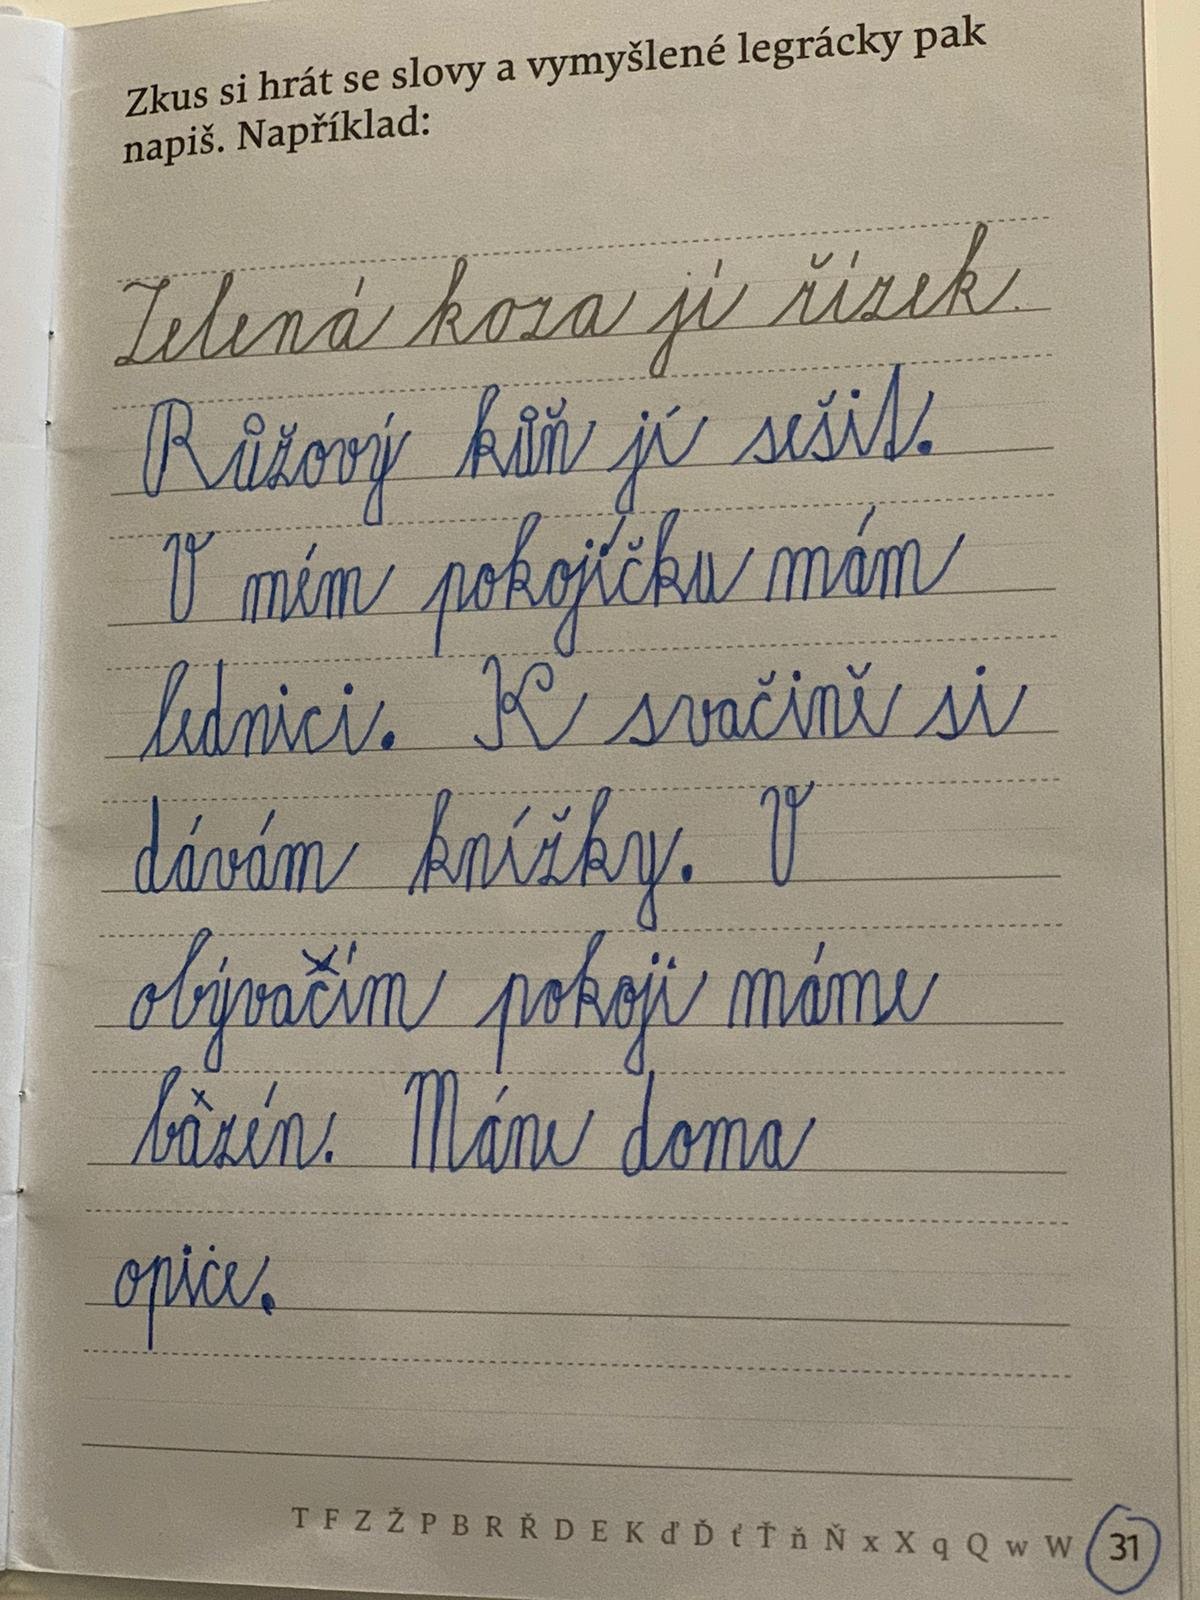 Zkus si hrát se slovy a vymyšlené legrácky pak
napiš. Například:
Zelená koza jí řízek.
Růžový kůň jí sešit.
V mém pokojíčku mám
lednici. K svačině si
dávám knížky. V
obývačím pokoji máme
bazén. Máne doma
opice.
T F Z Ž P B R Ř D E K ď Ď ť Ť ň Ň x X q Q w W 31